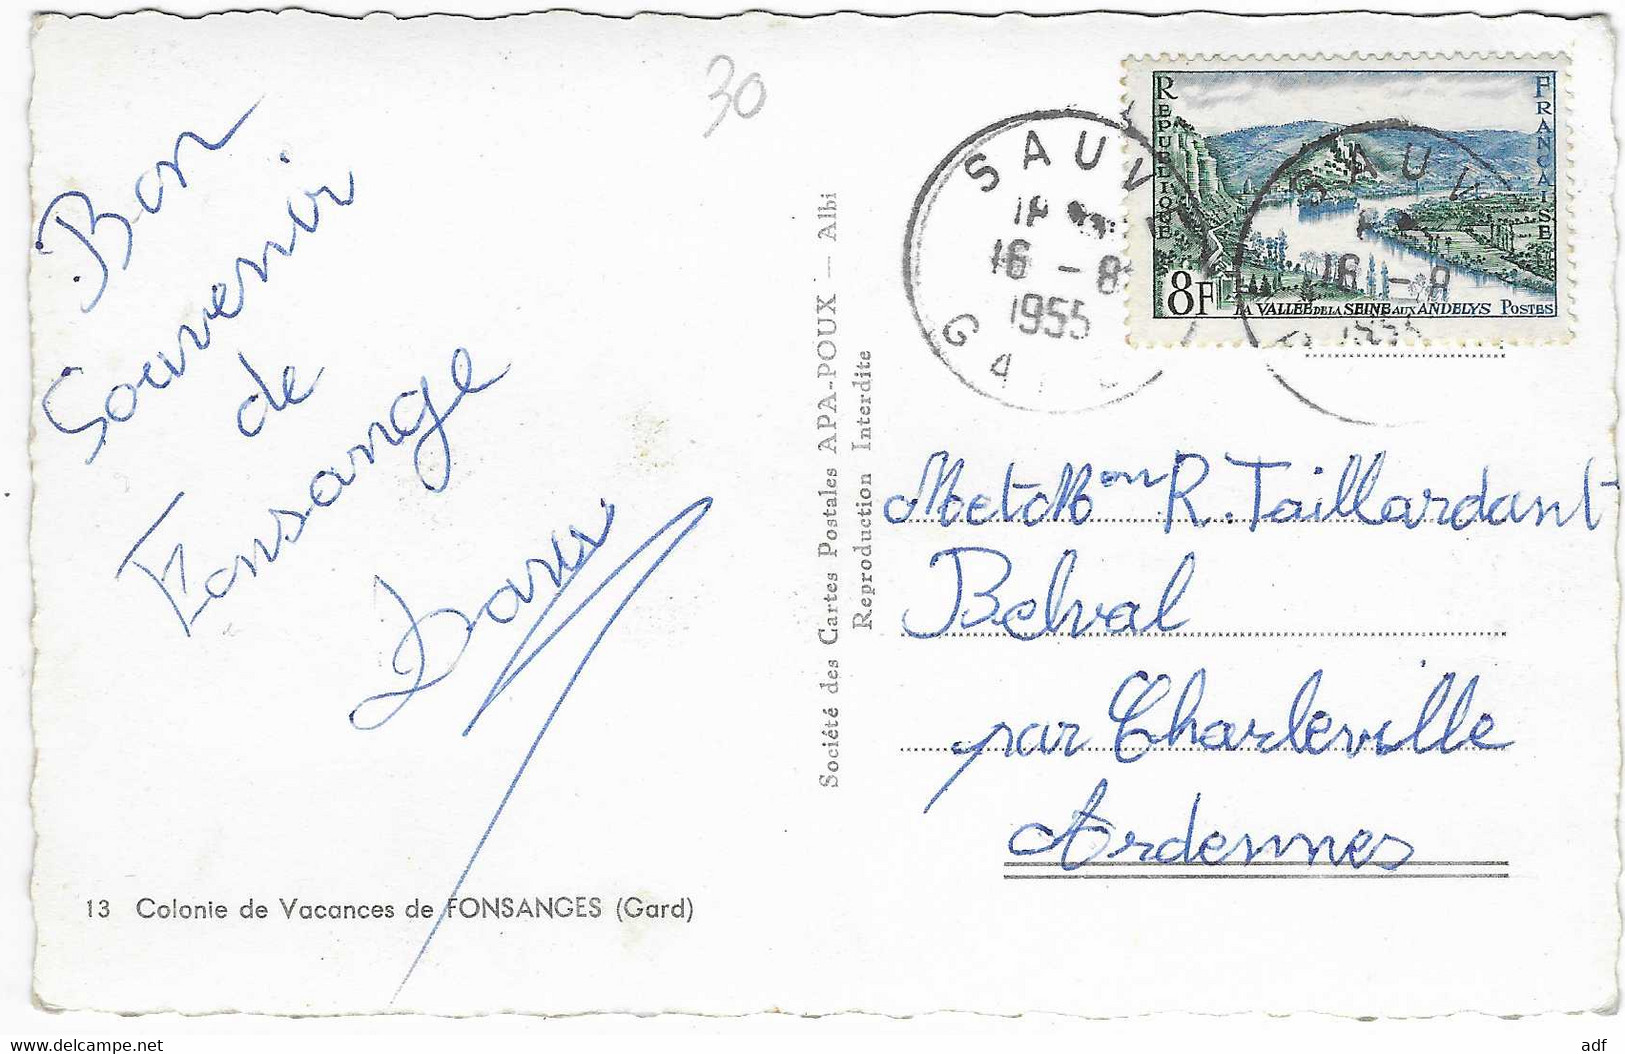 30
Bon
Souvenir
de
Fonsange
13 Colonie de Vacances de FONSANGES (Gard)
Société des Cartes Postales APA-POUX — Albi
Reproduction Interdite
REPUBLIQUE
FRANCAISE
8F
LA VALLÉE DE LA SEINE AUX ANDELYS POSTES
SAUV
16 - 8
1955
GA
SAUV
16 - 8
1955
M et M on R. Taillardant
Belval
par Charleville
Ardennes
www.delcampe.net
adf